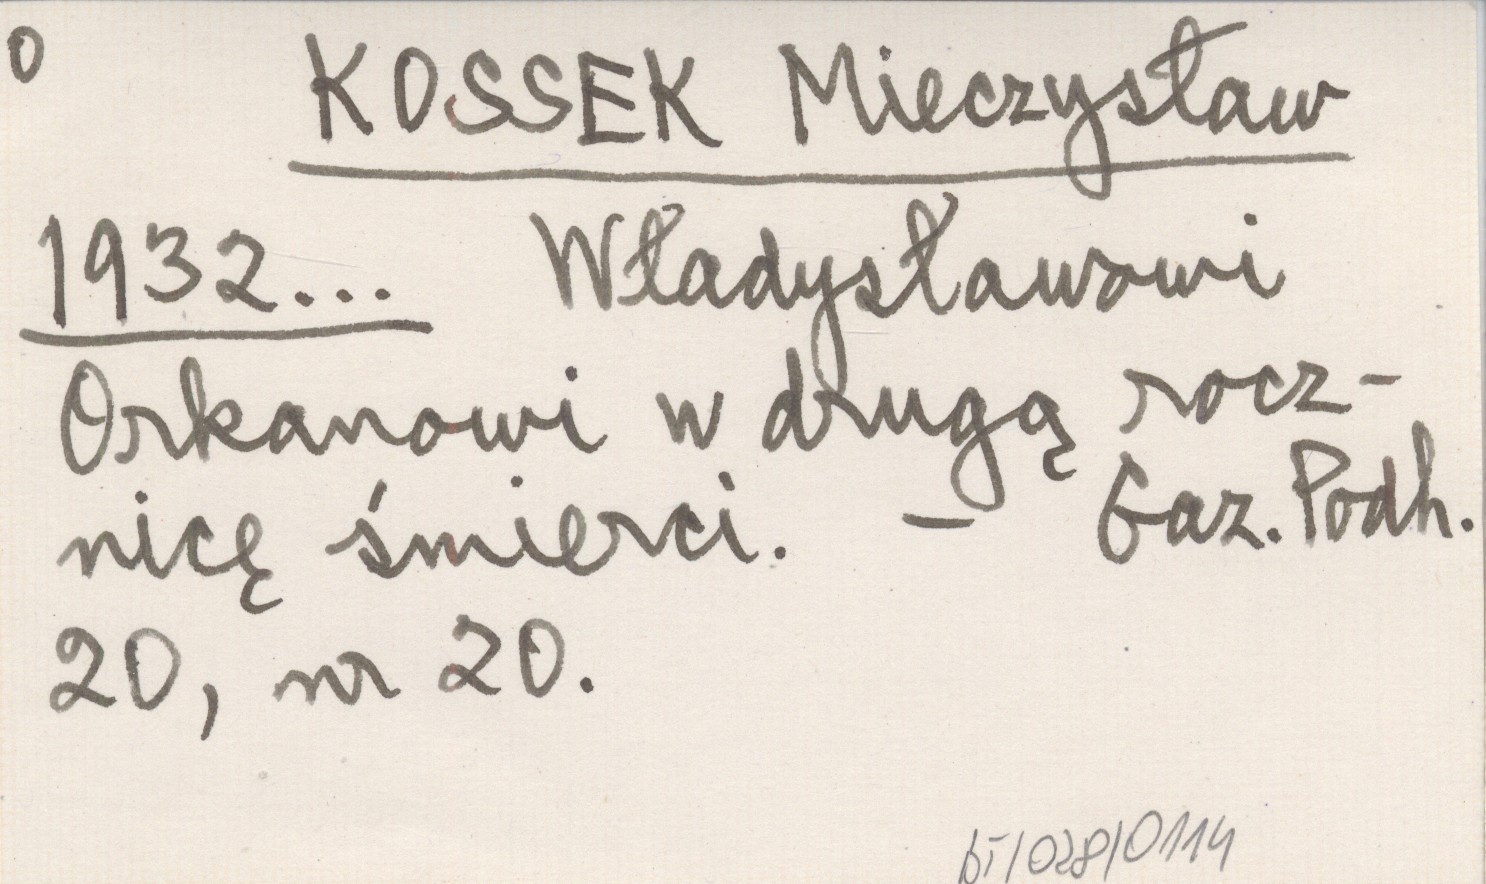 0
KOSSEK Mieczysław
1932... Władysławowi
Orkanowi w drugą rocz-
nicę śmierci. – Gaz. Podh.
20, nr 20.
bI/028/0114